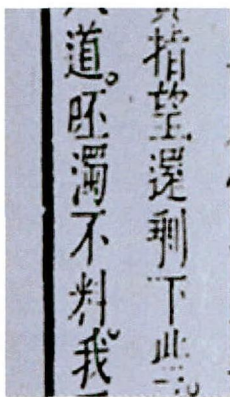 指望還剩下些。
道。呸濁不料。我